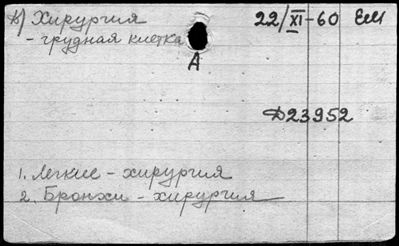 в) Хирургия 22/XI-60 ЕМ
- грудная клетка
А
Д23952
1. Легкие - хирургия
2. Бронхи - хирургия